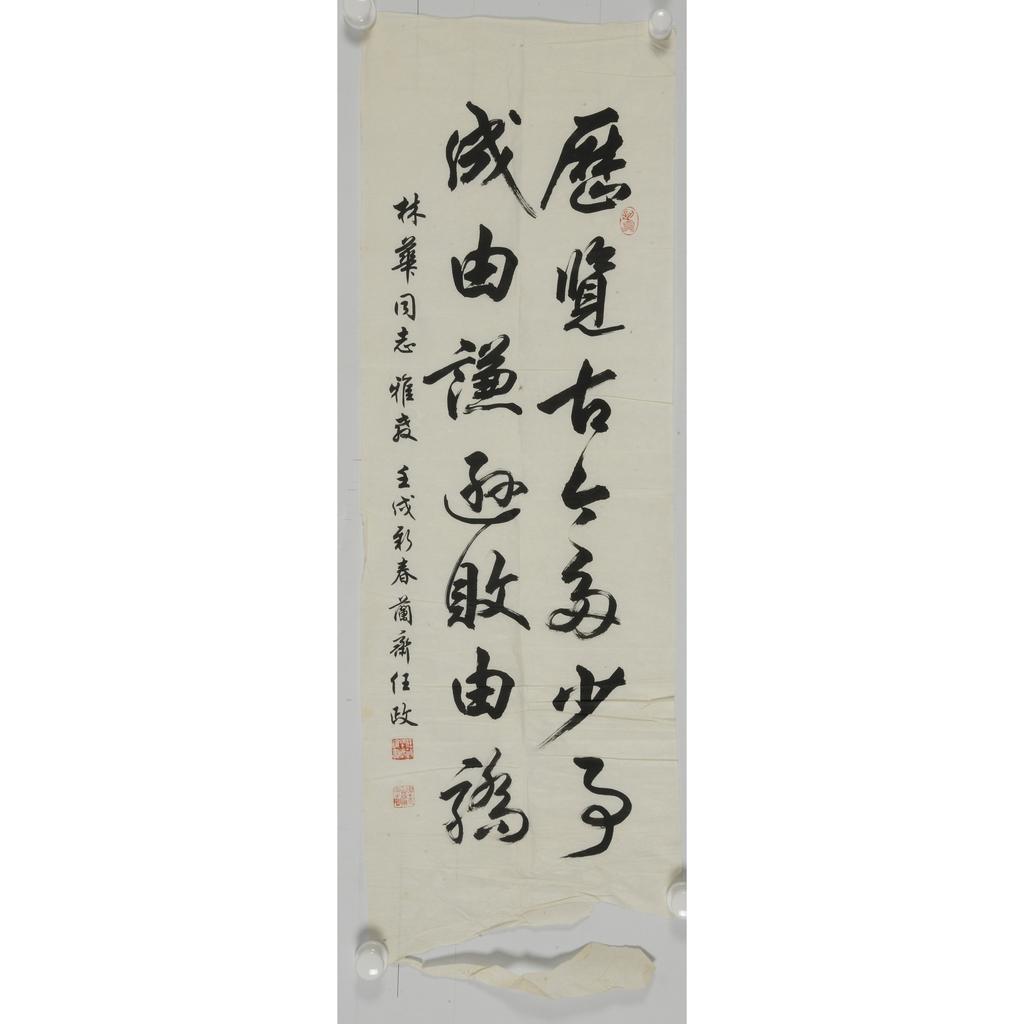 歷覽古今多少事
成由謙遜敗由驕
林華同志雅教壬戌新春蘭齋任政